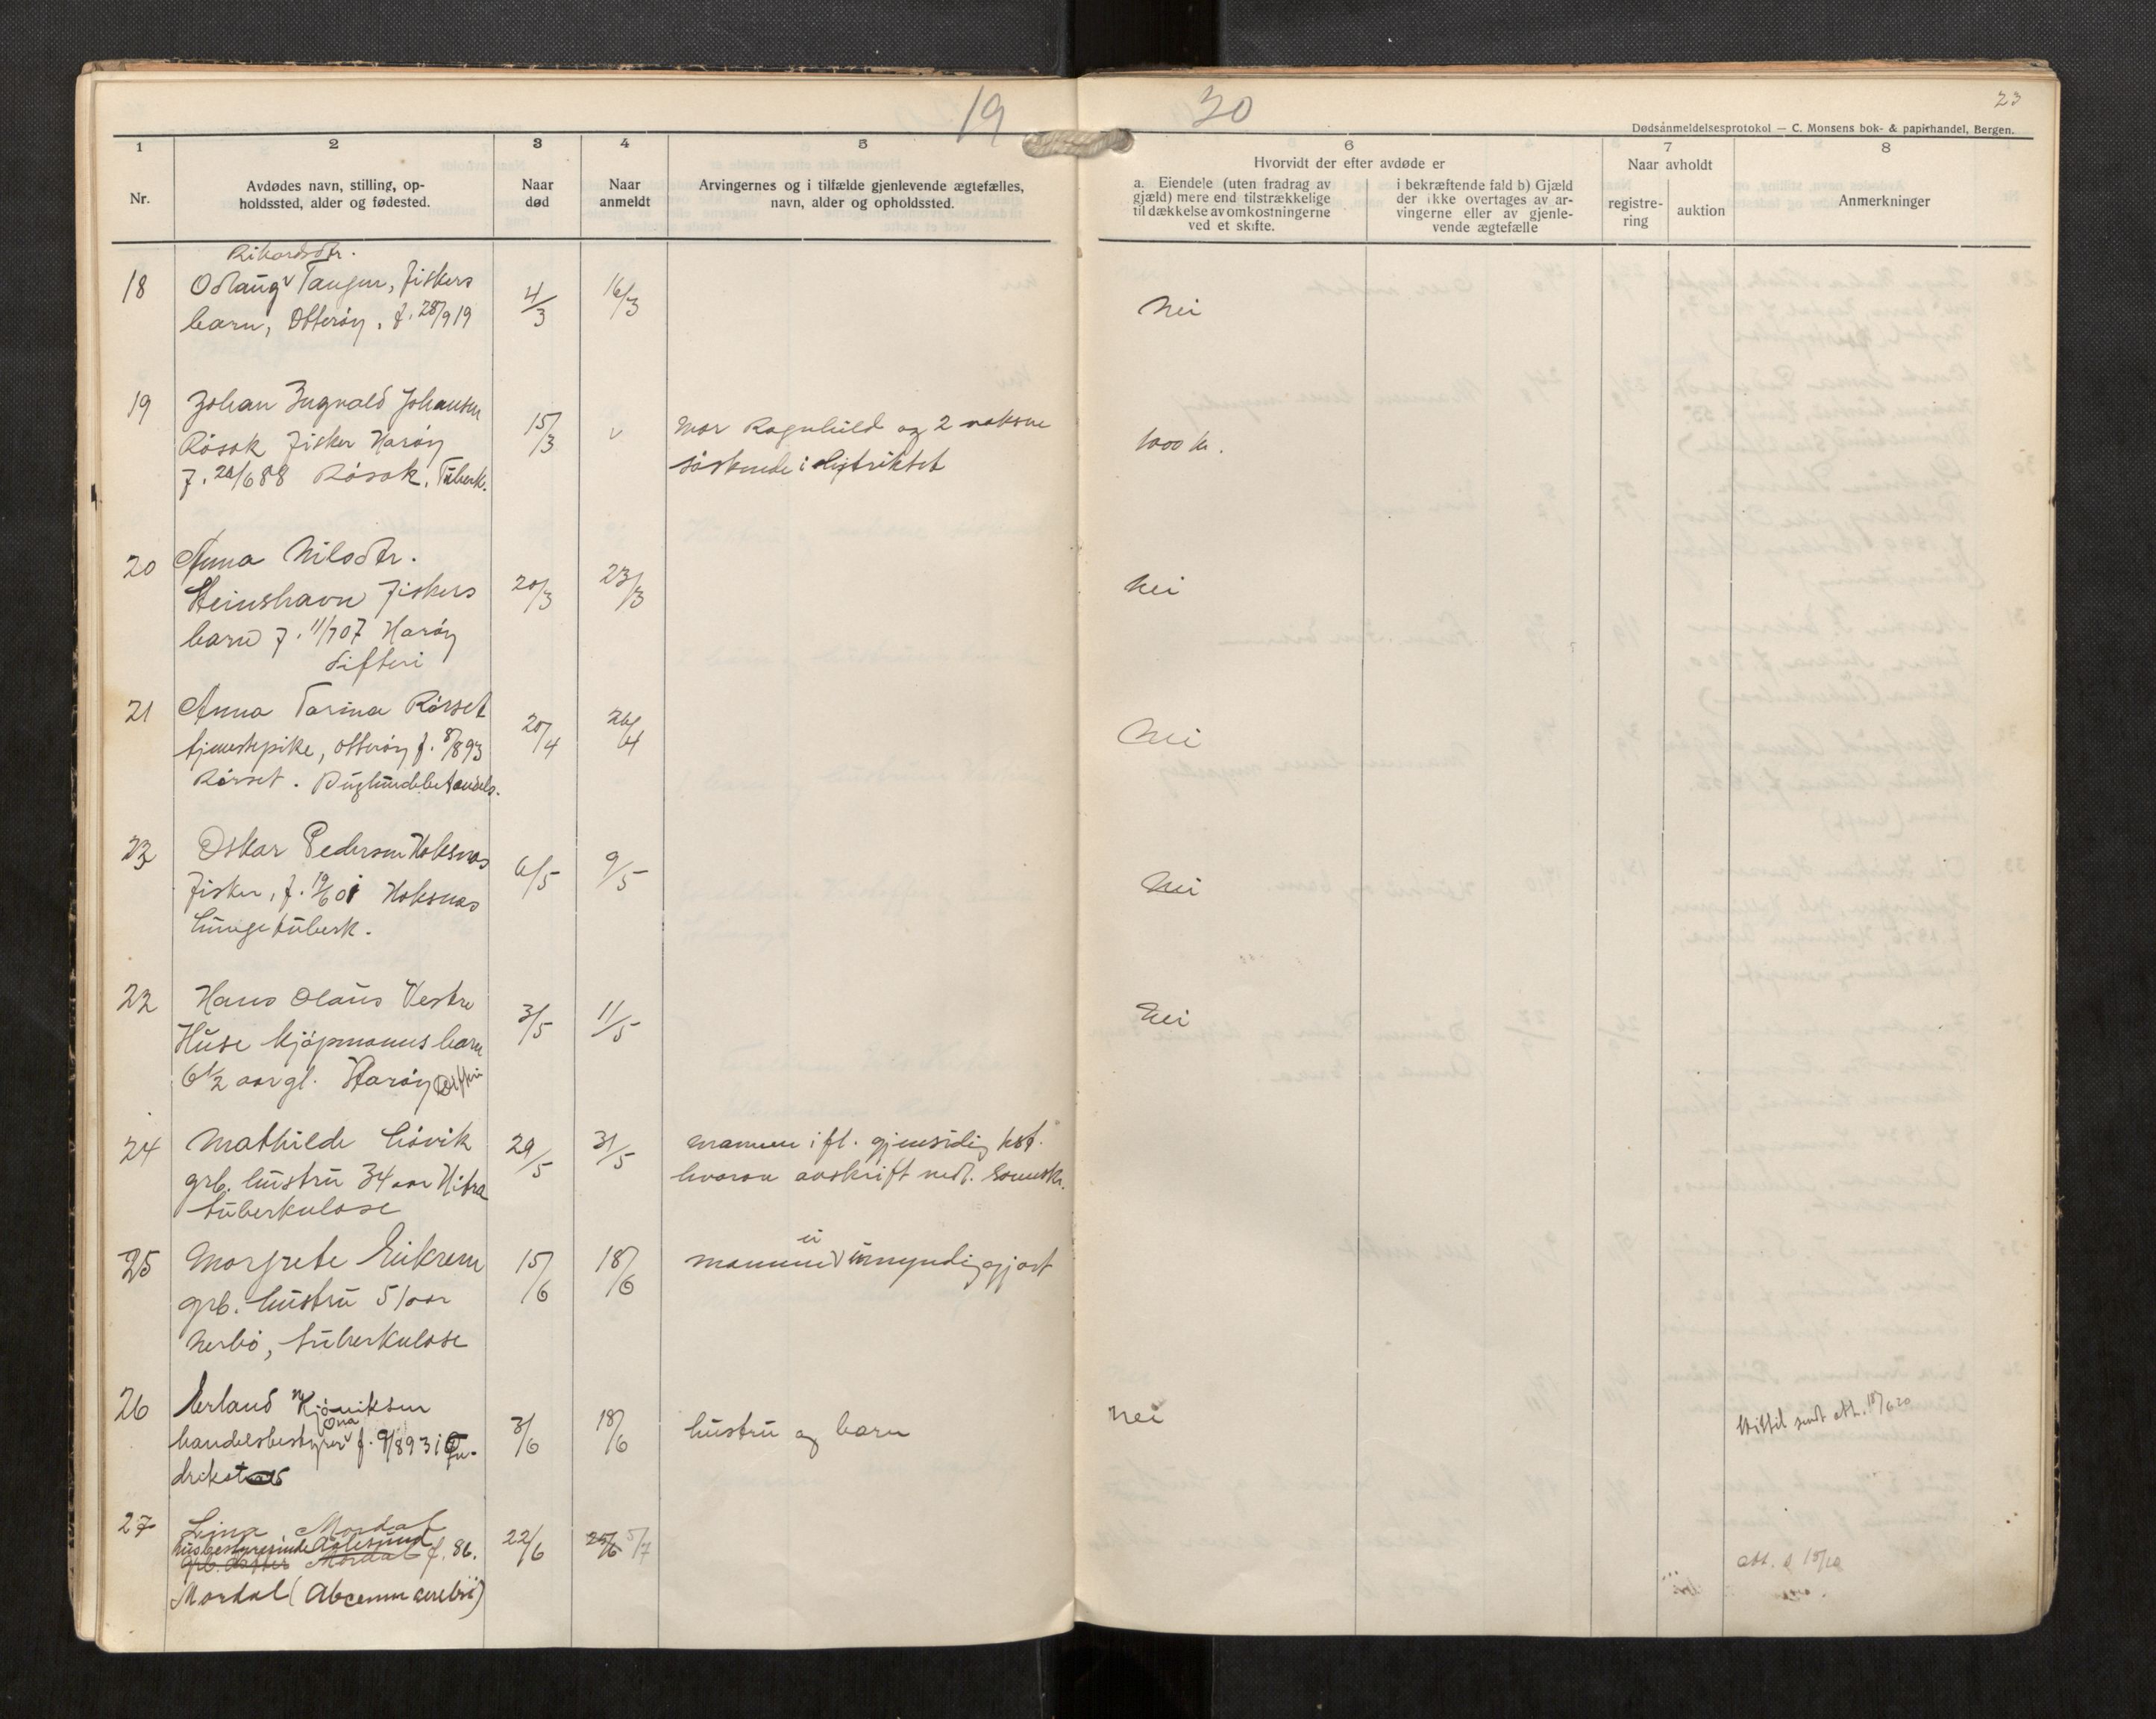 19 20
23
Dødsanmeldelsesprotokol — C. Monsens bok- & papirhandel, Bergen.
1 2 3 4 5 6 7 8
Nr.
Avdødes navn, stilling, op-
holdssted, alder og fødested.
Naar
død
Naar
anmeldt
Arvingernes og i tilfælde gjenlevende ægtefælles,
navn, alder og opholdssted.
Hvorvidt der efter avdøde er
a. Eiendele (uten fradrag av
gjæld) mere end tilstrækkelige
til dækkelse av omkostningerne
ved et skifte.
i bekræftende fald b) Gjæld
der ikke overtages av ar-
vingerne eller av gjenle-
vende ægtefælle
Naar avholdt
registre-
ring
auktion
Anmerkninger
Rikardsdtr.
18 Odlaug Tangen, fiskers 4/3 16/3 Nei
barn, Otterøy, f. 28/9 19
19 Johan Ingvald Johansen 15/3 v Mor Ragnhild og 2 voksne 1000 kr.
Røsok Fisker Harøy søskende i distriktet
f. 24/6 88 Røsok. Tuberk.
20 Anna Nilsdtr. 20/3 23/3 Nei
Steinshavn Fiskers
barn f. 11/7 07 Harøy
difteri
21 Anna Tarina Rørset 20/4 26/4 Nei
tjenestepike, Otterøy f. 8/8 93
Rørset.
23 Oskar Pedersen Hoksnes 6/5 9/5 Nei
Fisker, f. 19/6 01 Hoksnes
lungetuberk.
22 Hans Olaus Vestre 3/5 11/5 Nei
Huse kjøpmanns barn
6 1/2 aar gl. Harøy Difteri
24 Mathilde Løvik 29/5 31/5 manen ifl. gjensidig test.
grb. hustru 34 aar Hitra hvorav avskrift
tuberkulose
ei
25 Margrete Eikrem 15/6 18/6 mannen v umyndiggjort
grb. hustru 51 aar
Nerbø, tuberkulose
26 Erland Kjønniksen 3/6 18/6 hustru og barn Nei
Ona
handelsbestyrer v f. 9/8 93 i Fre-
drikstad
sendt att. 18/6 20
27 Lina Mordal 22/6 25/6 5/7
husbestyrerinde Aalesund
grb. datter Mordal f. 86.
Mordal (Abcessus cerebri)
att.